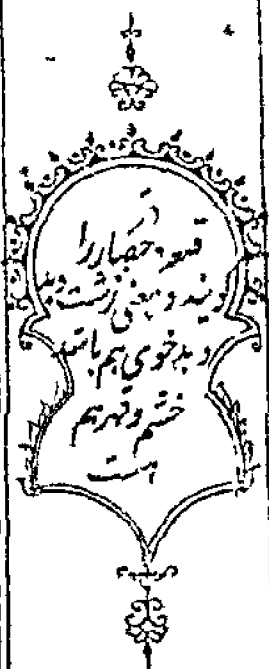 قلعه و حصار را
گویند و بمعنی زشت و بد
و بدخوی هم باشد
خشم و قهر هم
است